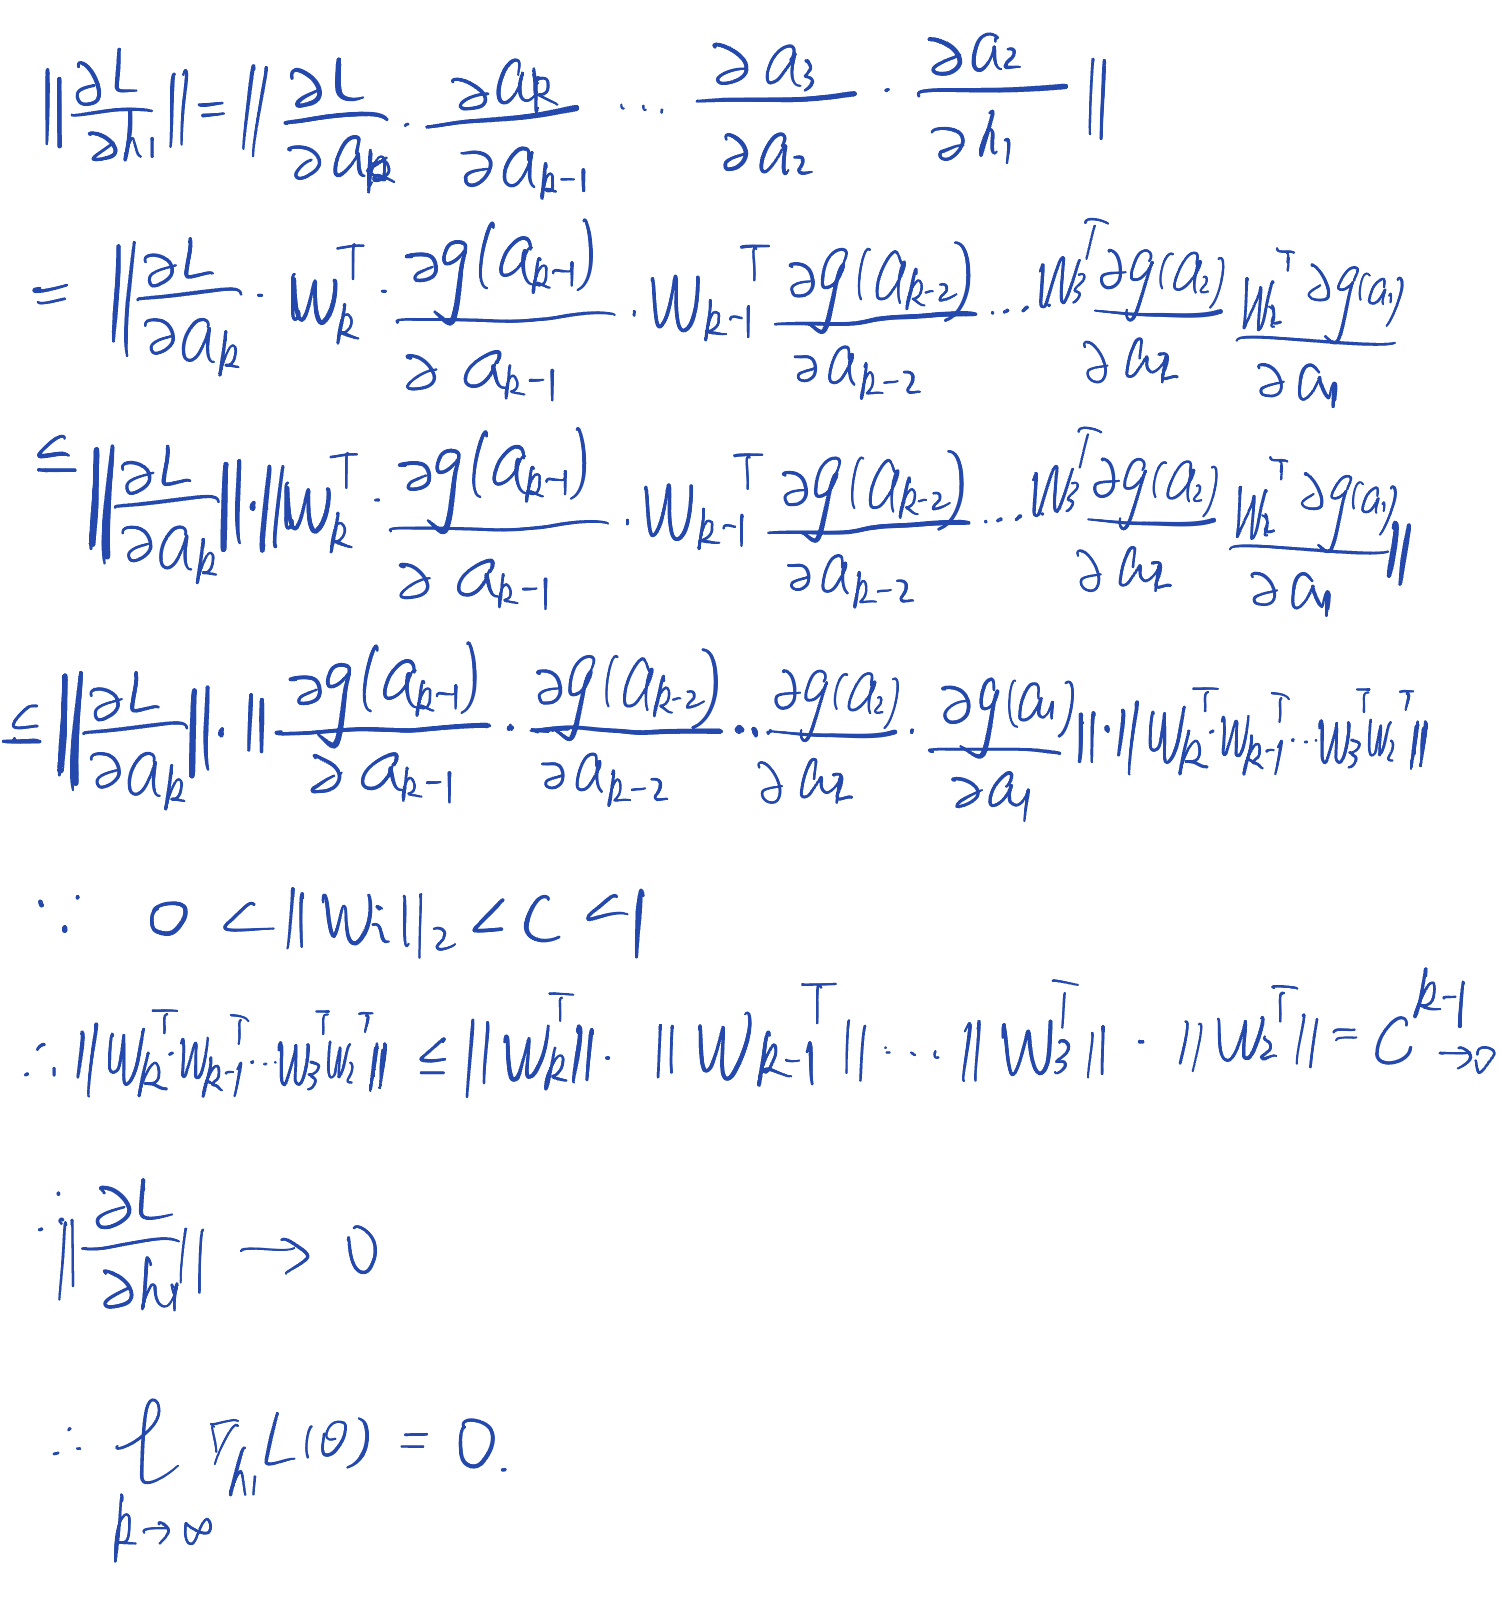 ‖∂L/∂h₁‖ = ‖∂L/∂a_k · ∂a_k/∂a_{k-1} ... ∂a₃/∂a₂ · ∂a₂/∂h₁‖
= ‖∂L/∂a_k · W_k^T · ∂g(a_{k-1})/∂a_{k-1} · W_{k-1}^T ∂g(a_{k-2})/∂a_{k-2} ... W₃^T ∂g(a₂)/∂a₂ W₂^T ∂g(a₁)/∂a₁
≤ ‖∂L/∂a_k‖ · ‖W_k^T · ∂g(a_{k-1})/∂a_{k-1} · W_{k-1}^T ∂g(a_{k-2})/∂a_{k-2} ... W₃^T ∂g(a₂)/∂a₂ W₂^T ∂g(a₁)/∂a₁‖
≤ ‖∂L/∂a_k‖ · ‖∂g(a_{k-1})/∂a_{k-1} · ∂g(a_{k-2})/∂a_{k-2} ... ∂g(a₂)/∂a₂ · ∂g(a₁)/∂a₁‖ · ‖W_k^T · W_{k-1}^T ... W₃^T W₂^T‖
∵ 0 < ‖Wi‖₂ < C < 1
∴ ‖W_k^T · W_{k-1}^T ... W₃^T W₂^T‖ ≤ ‖W_k^T‖ · ‖W_{k-1}^T‖ ... ‖W₃^T‖ · ‖W₂^T‖ = C^{k-1} → 0
∴ ‖∂L/∂h₁‖ → 0
∴ ℓ_{k→∞} ∇_{h₁} L(θ) = 0.